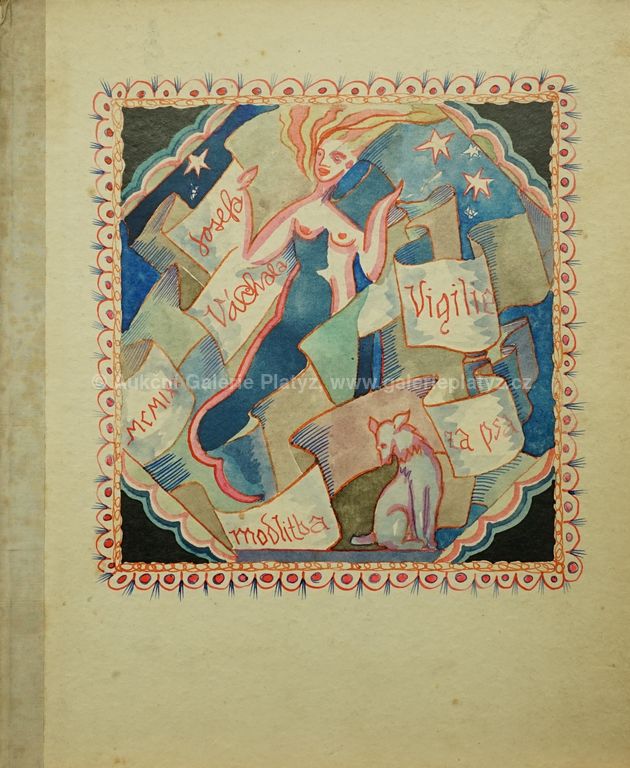 Josefa
Váchala
Vigilie
MCMIX
za psa
modlitba
© Aukční Galerie Platýz, www.galerieplatyz.cz